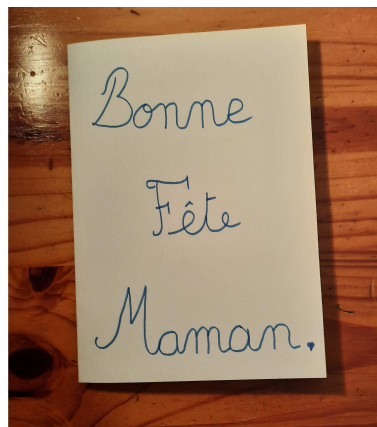 Bonne
Fête
Maman.